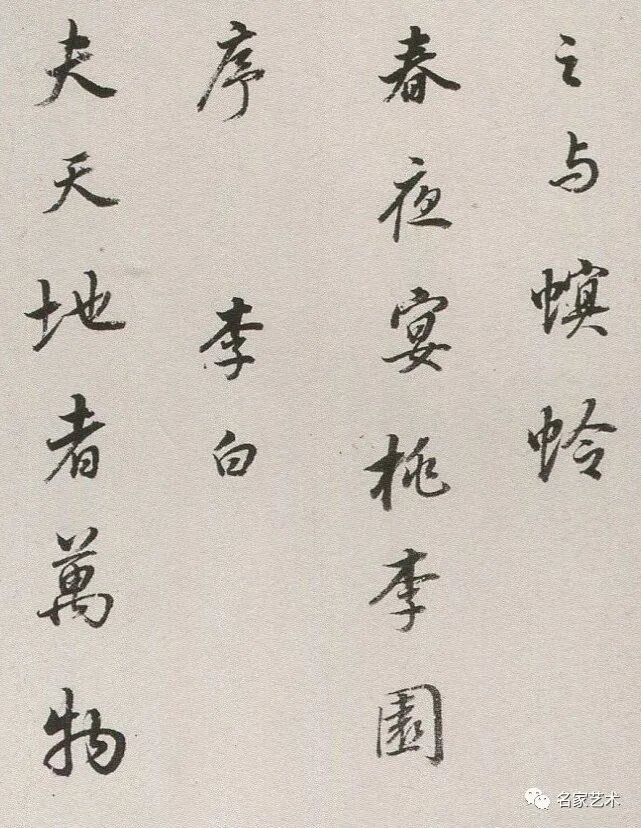 之与螟蛉
春夜宴桃李園
序 李白
夫天地者萬物
名家艺术